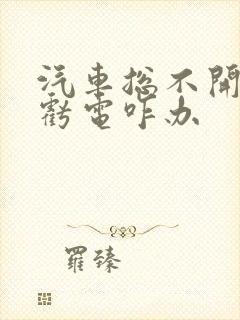 汽車总不開
虧電咋办
羅臻